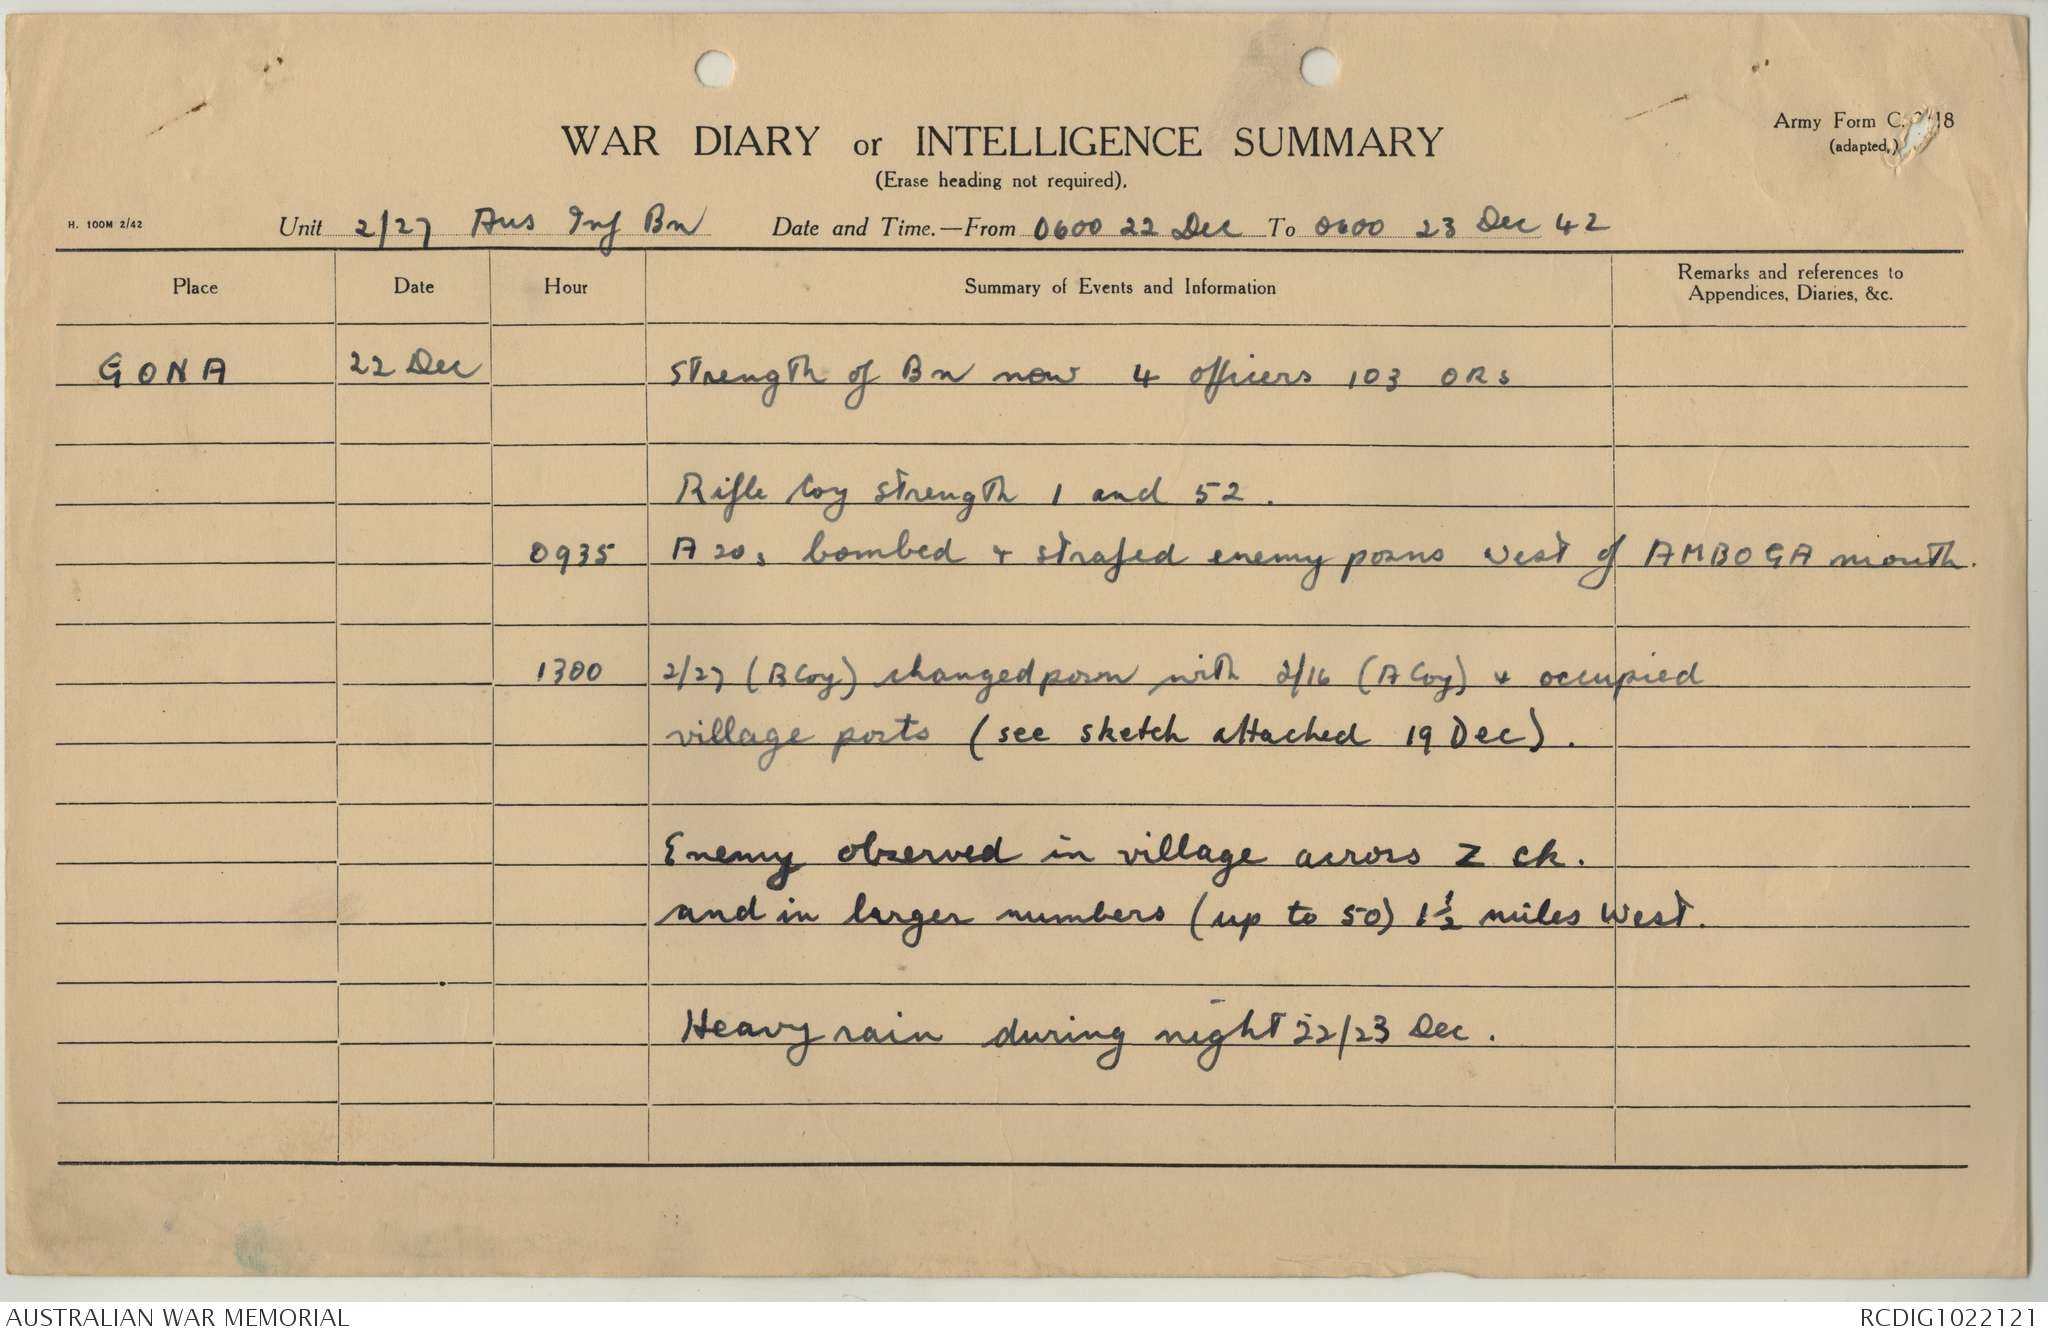 WAR DIARY or INTELLIGENCE SUMMARY
(Erase heading not required).
Army Form C. 18
(adapted.)
H. 100M 2/42
Unit 2/27 Aus Inf Bn Date and Time.—From 0600 22 Dec To 0600 23 Dec 42
Place Date Hour Summary of Events and Information Remarks and references to Appendices, Diaries, &c.
GONA 22 Dec Strength of Bn now 4 officers 103 ORs
Rifle Coy strength 1 and 52.
0935 A20s bombed + strafed enemy posns West of AMBOGA mouth.
1300 2/27 (B Coy) changed posn with 2/16 (A Coy) + occupied
village posts (see sketch attached 19 Dec).
Enemy observed in village across Z ck.
and in larger numbers (up to 50) 1½ miles West.
Heavy rain during night 22/23 Dec.
AUSTRALIAN WAR MEMORIAL
RCDIG1022121